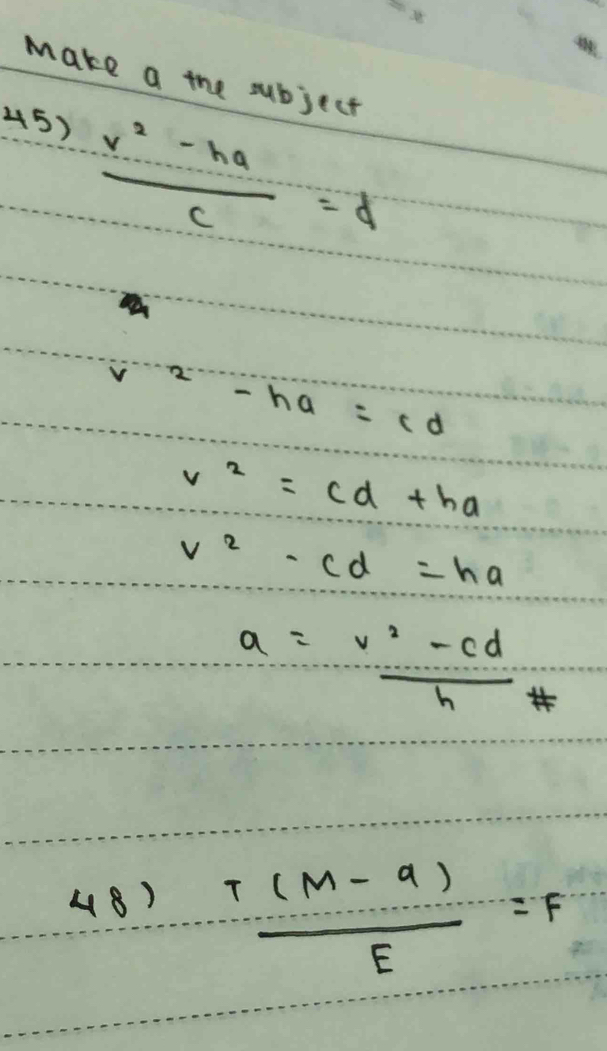 Make a the subject
45) v² - ha
c
= d
v² - ha = cd
v² = cd + ha
v² - cd = ha
a = v² - cd
h #
48) T (M - a)
E
= F